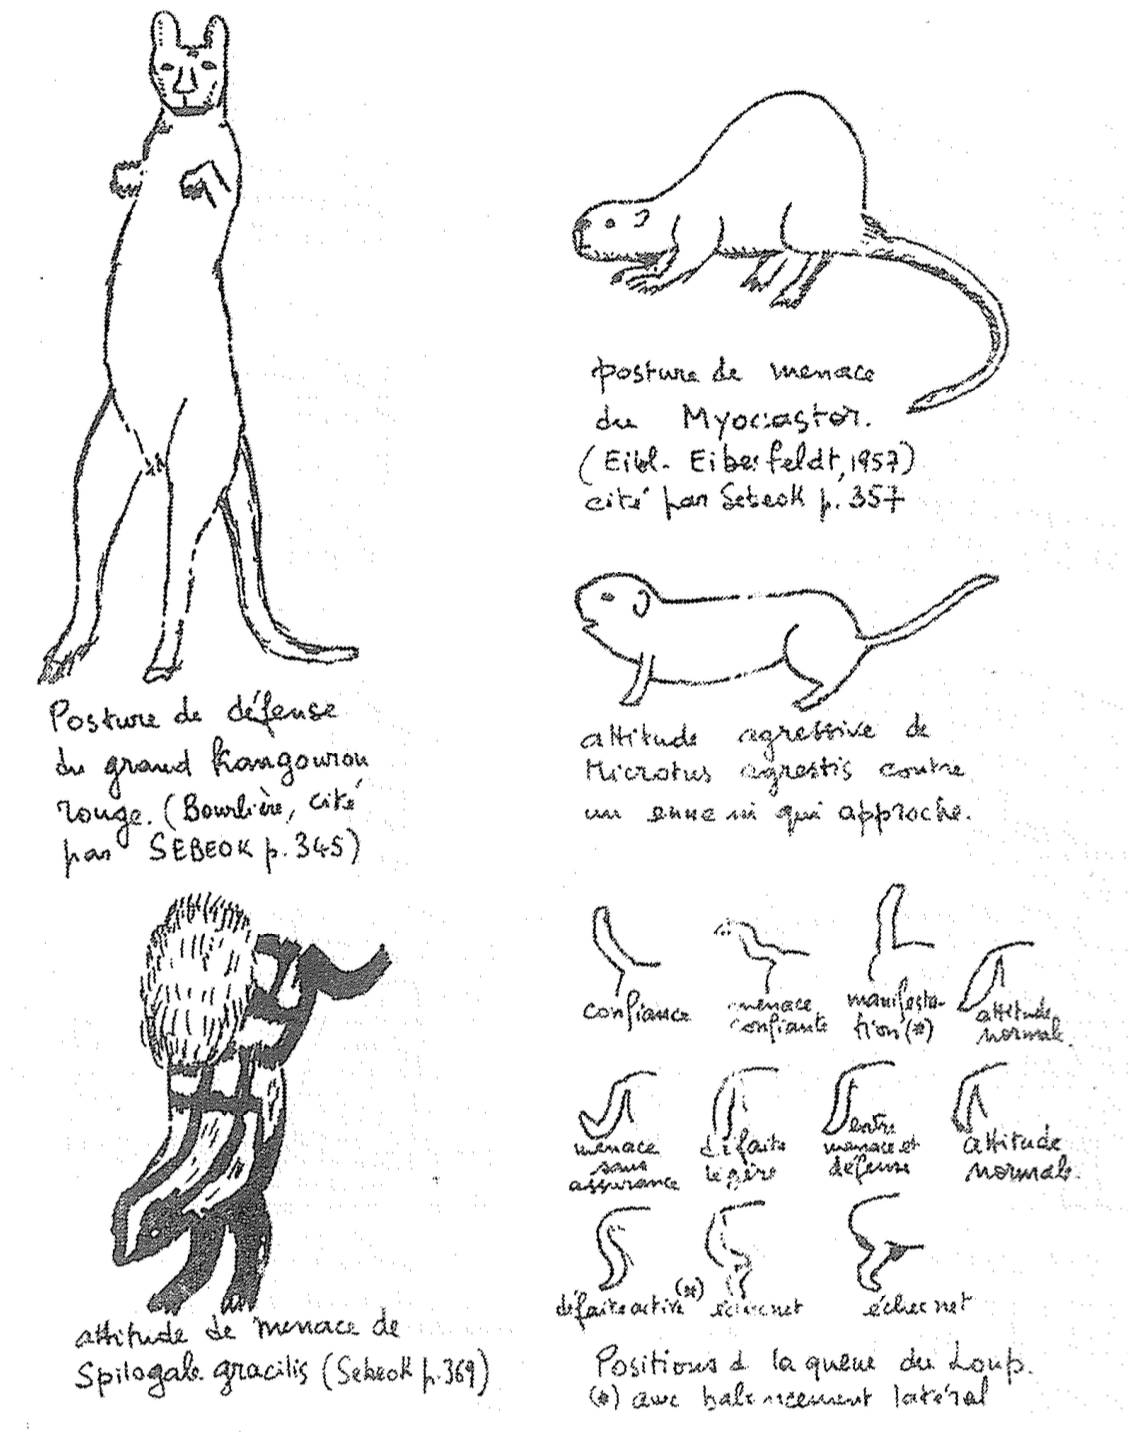 Posture de défense
du grand Kangourou
rouge. (Bourlière, cité
par SEBEOK p. 345)
posture de menace
du Myocastor.
(Eibl-Eibesfeldt, 1957)
cité par Sebeok p. 357
attitude agressive de
Microtus agrestis contre
un ennemi qui approche.
attitude de menace de
Spilogale gracilis (Sebeok p. 369)
confiance
menace
confiante
manifesta-
tion (*)
attitude
normale.
menace
sans
assurance
défaite
légère
entre
menace et
défense
attitude
normale.
défaite active (*)
échec net
échec net
Positions d la queue du Loup.
(*) avec balancement latéral